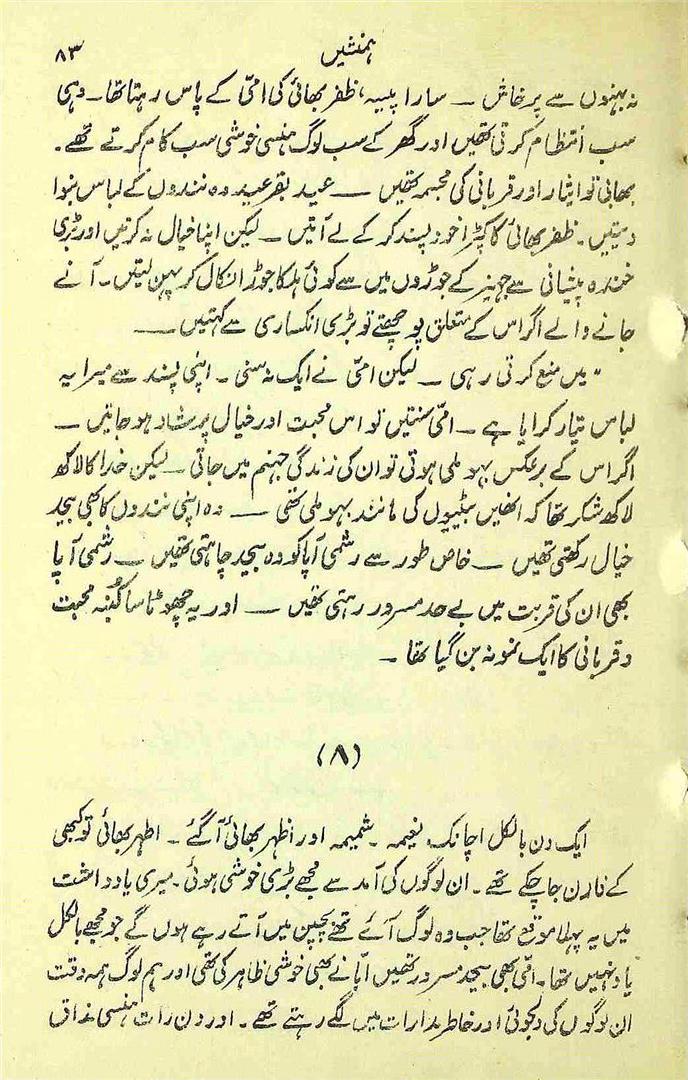 ہمنشیں ۸۳
نہ بہنوں سے پرخاش ـــ سارا پیسہ، ظفر بھائی کی امّی کے پاس رہتا تھا۔ وہی
سب انتظام کرتی تھیں اور گھر کے سب لوگ ہنسی خوشی سب کام کرتے تھے۔
بھابی تو ایثار اور قربانی کی مجسمہ تھیں ـــ عید بقرعید وہ نندوں کے لباس بنوا
دیتیں۔ ظفر بھائی کا کپڑا خود پسند کر کے لے آتیں ـــ لیکن اپنا خیال نہ کرتیں اور بڑی
خندہ پیشانی سے جہیز کے جوڑوں میں سے کوئی ہلکا جوڑا نکال کر پہن لیتیں۔ آنے
جانے والے اگر اس کے متعلق پوچھتے تو بڑی انکساری سے کہتیں ـــ
"میں منع کرتی رہی ـــ لیکن امّی نے ایک نہ سنی۔ اپنی پسند سے میرا یہ
لباس تیار کرایا ہے ـــ امّی سنتیں تو اس محبت اور خیال پر شاد ہو جاتیں ـــ
اگر اس کے برعکس بہو ملی ہوتی تو ان کی زندگی جہنم میں جاتی ـــ لیکن خدا کا لاکھ
لاکھ شکر تھا کہ انھیں بیٹیوں کی مانند بہو ملی تھی ـــ وہ اپنی نندوں کا بھی بیحد
خیال رکھتی تھیں ـــ خاص طور سے رشمی آپا کو وہ بیحد چاہتی تھیں ـــ رشمی آپا
بھی ان کی قربت میں بے حد مسرور رہتی تھیں ـــ اور یہ چھوٹا سا کُنبہ محبت
و قربانی کا ایک نمونہ بن گیا تھا۔
(۸)
ایک دن بالکل اچانک نعیمہ۔ شمیمہ اور اظہر بھائی آ گئے۔ اظہر بھائی تو کبھی
کے فارن جا چکے تھے۔ ان لوگوں کی آمد سے مجھے بڑی خوشی ہوئی۔ میری یادداشت
میں یہ پہلا موقع تھا جب وہ لوگ آئے تھے بچپن میں آتے رہے ہوں گے جو مجھے بالکل
یاد نہیں تھا۔ امّی بھی بیحد مسرور تھیں اپّا نے بھی خوشی ظاہر کی تھی اور ہم لوگ ہمہ وقت
ان لوگوں کی دلجوئی اور خاطر مدارات میں لگے رہتے تھے۔ اور دن رات ہنسی مذاق